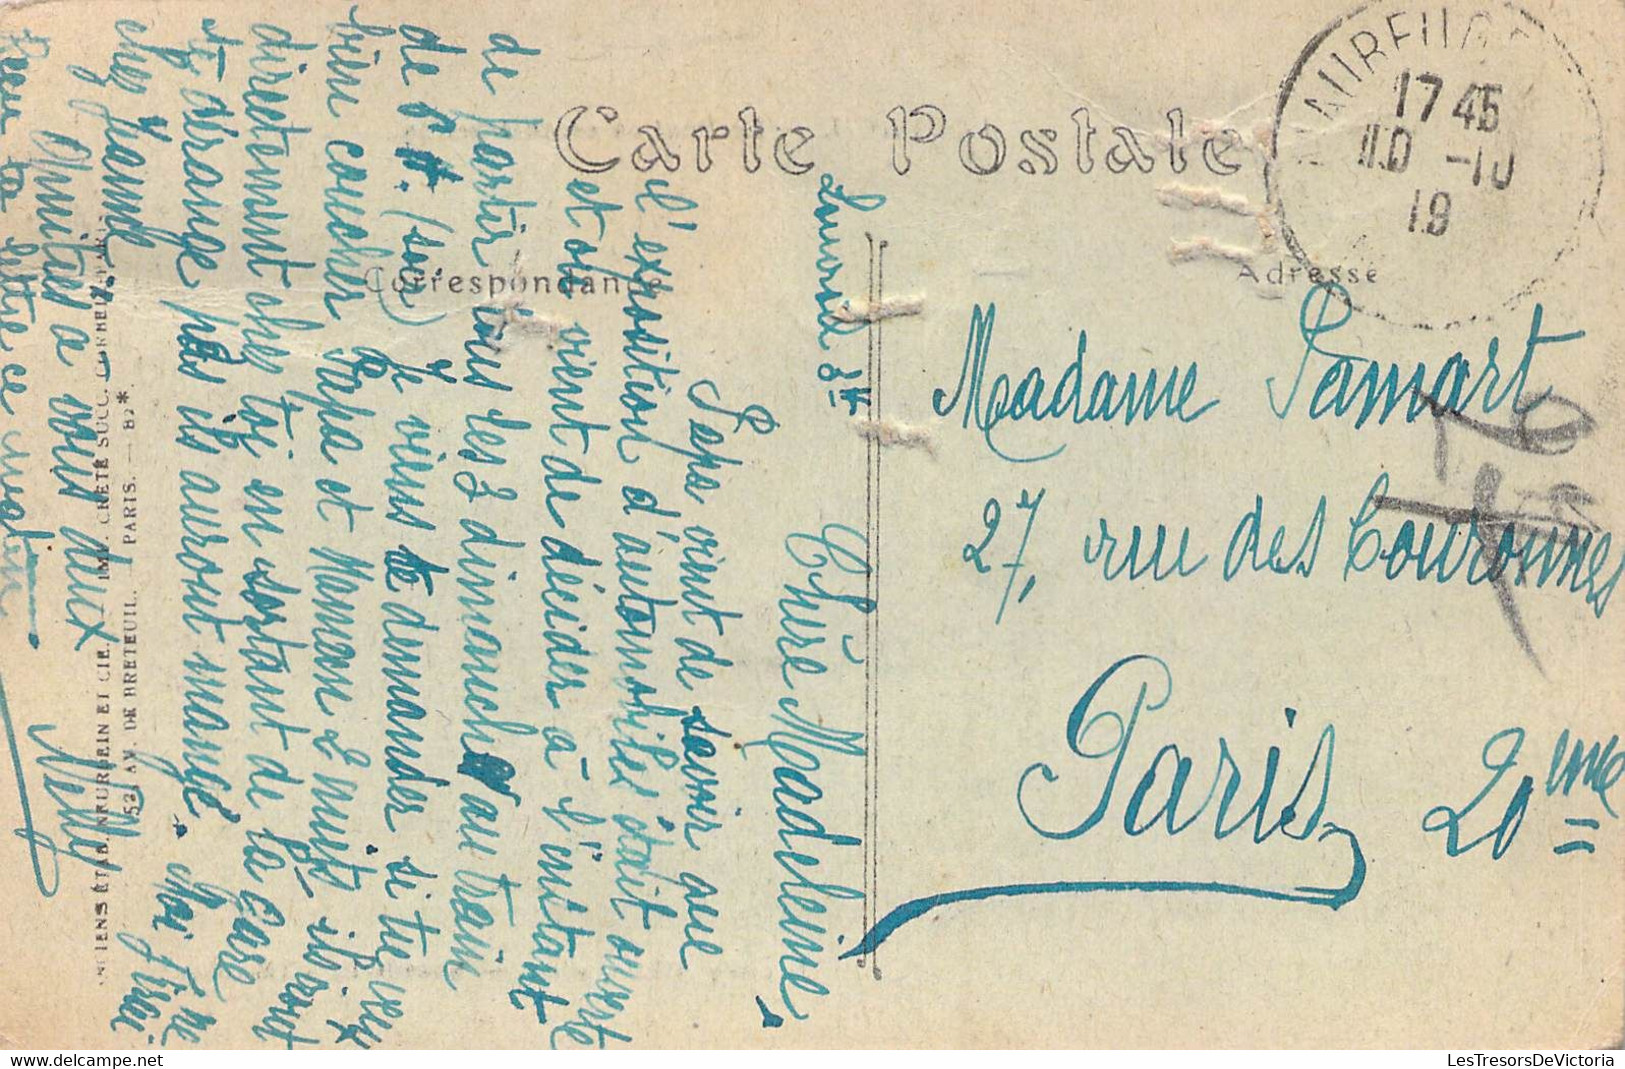 Carte Postale
Correspondance
Adresse
17 45
10 -10
19
Madame Pamart
27, rue des Couronnes
Paris
20eme
Samedi 8h
Chère Madeleine,
Papa vient de savoir que
l'exposition d'automobiles était ouverte
et on vient de décider à l'instant
de partir tous les 3 dimanche au train
de 5 h. (soir) Je viens te demander si tu veux
bien coucher Papa et Maman 2 nuits, ils iront
directement chez toi en sortant de la gare
te dérange pas ils auront mangé. Moi j'irai
chez Jeanne
Amitiés à vous deux
Nelly
Reçu ta lettre ce matin.
ANCIENS ÉTAB. NEURDEIN ET CIE. IMP. CRÉTÉ SUCC. CORBEIL, PARIS
52, AV. DE BRETEUIL. PARIS. — B2*
LesTresorsDeVictoria
© delcampe.net